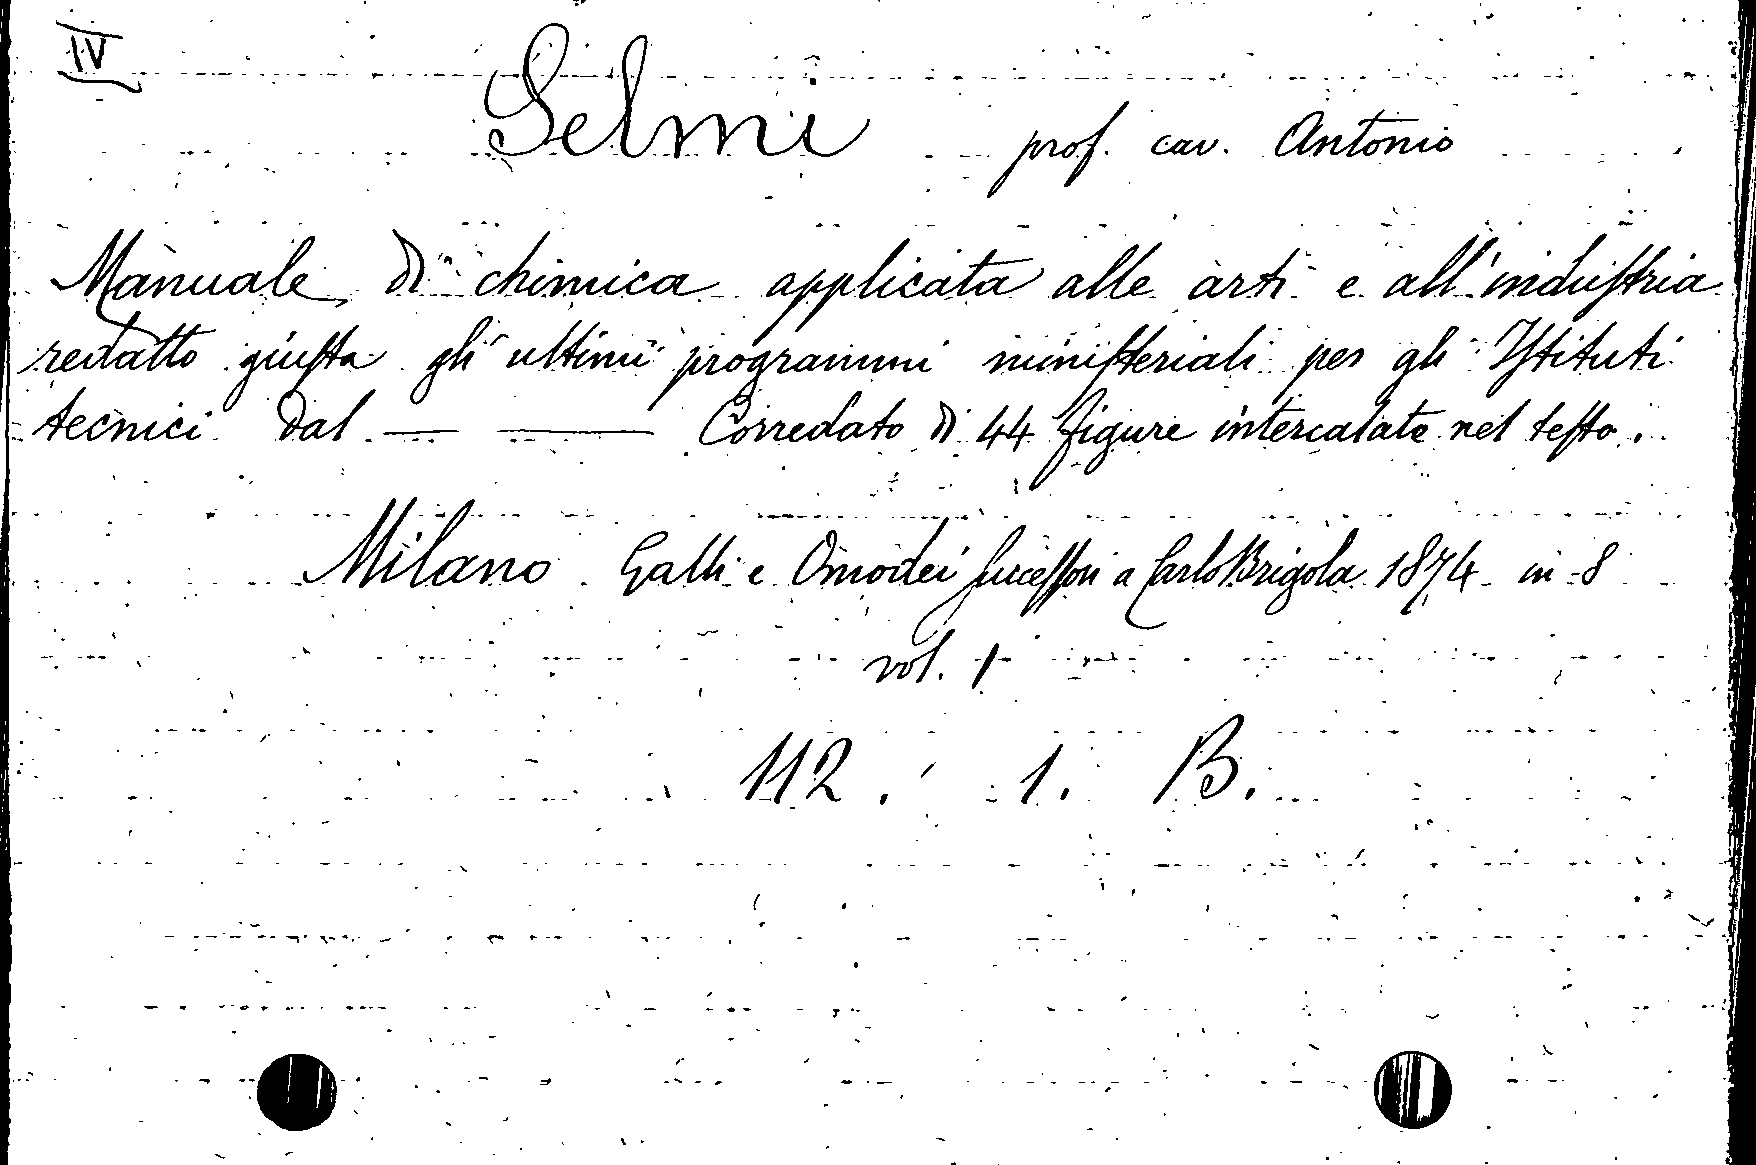 IV
Selmi prof. cav. Antonio
Manuale di chimica applicata alle arti e all'industria
redatto giusta gli ultimi programmi ministeriali per gli Istituti
tecnici dal — — Corredato di 44 figure intercalate nel testo.
Milano Galli e Omodei successori a Carlo Brigola 1874 in 8
vol. 1
112. 1. B.